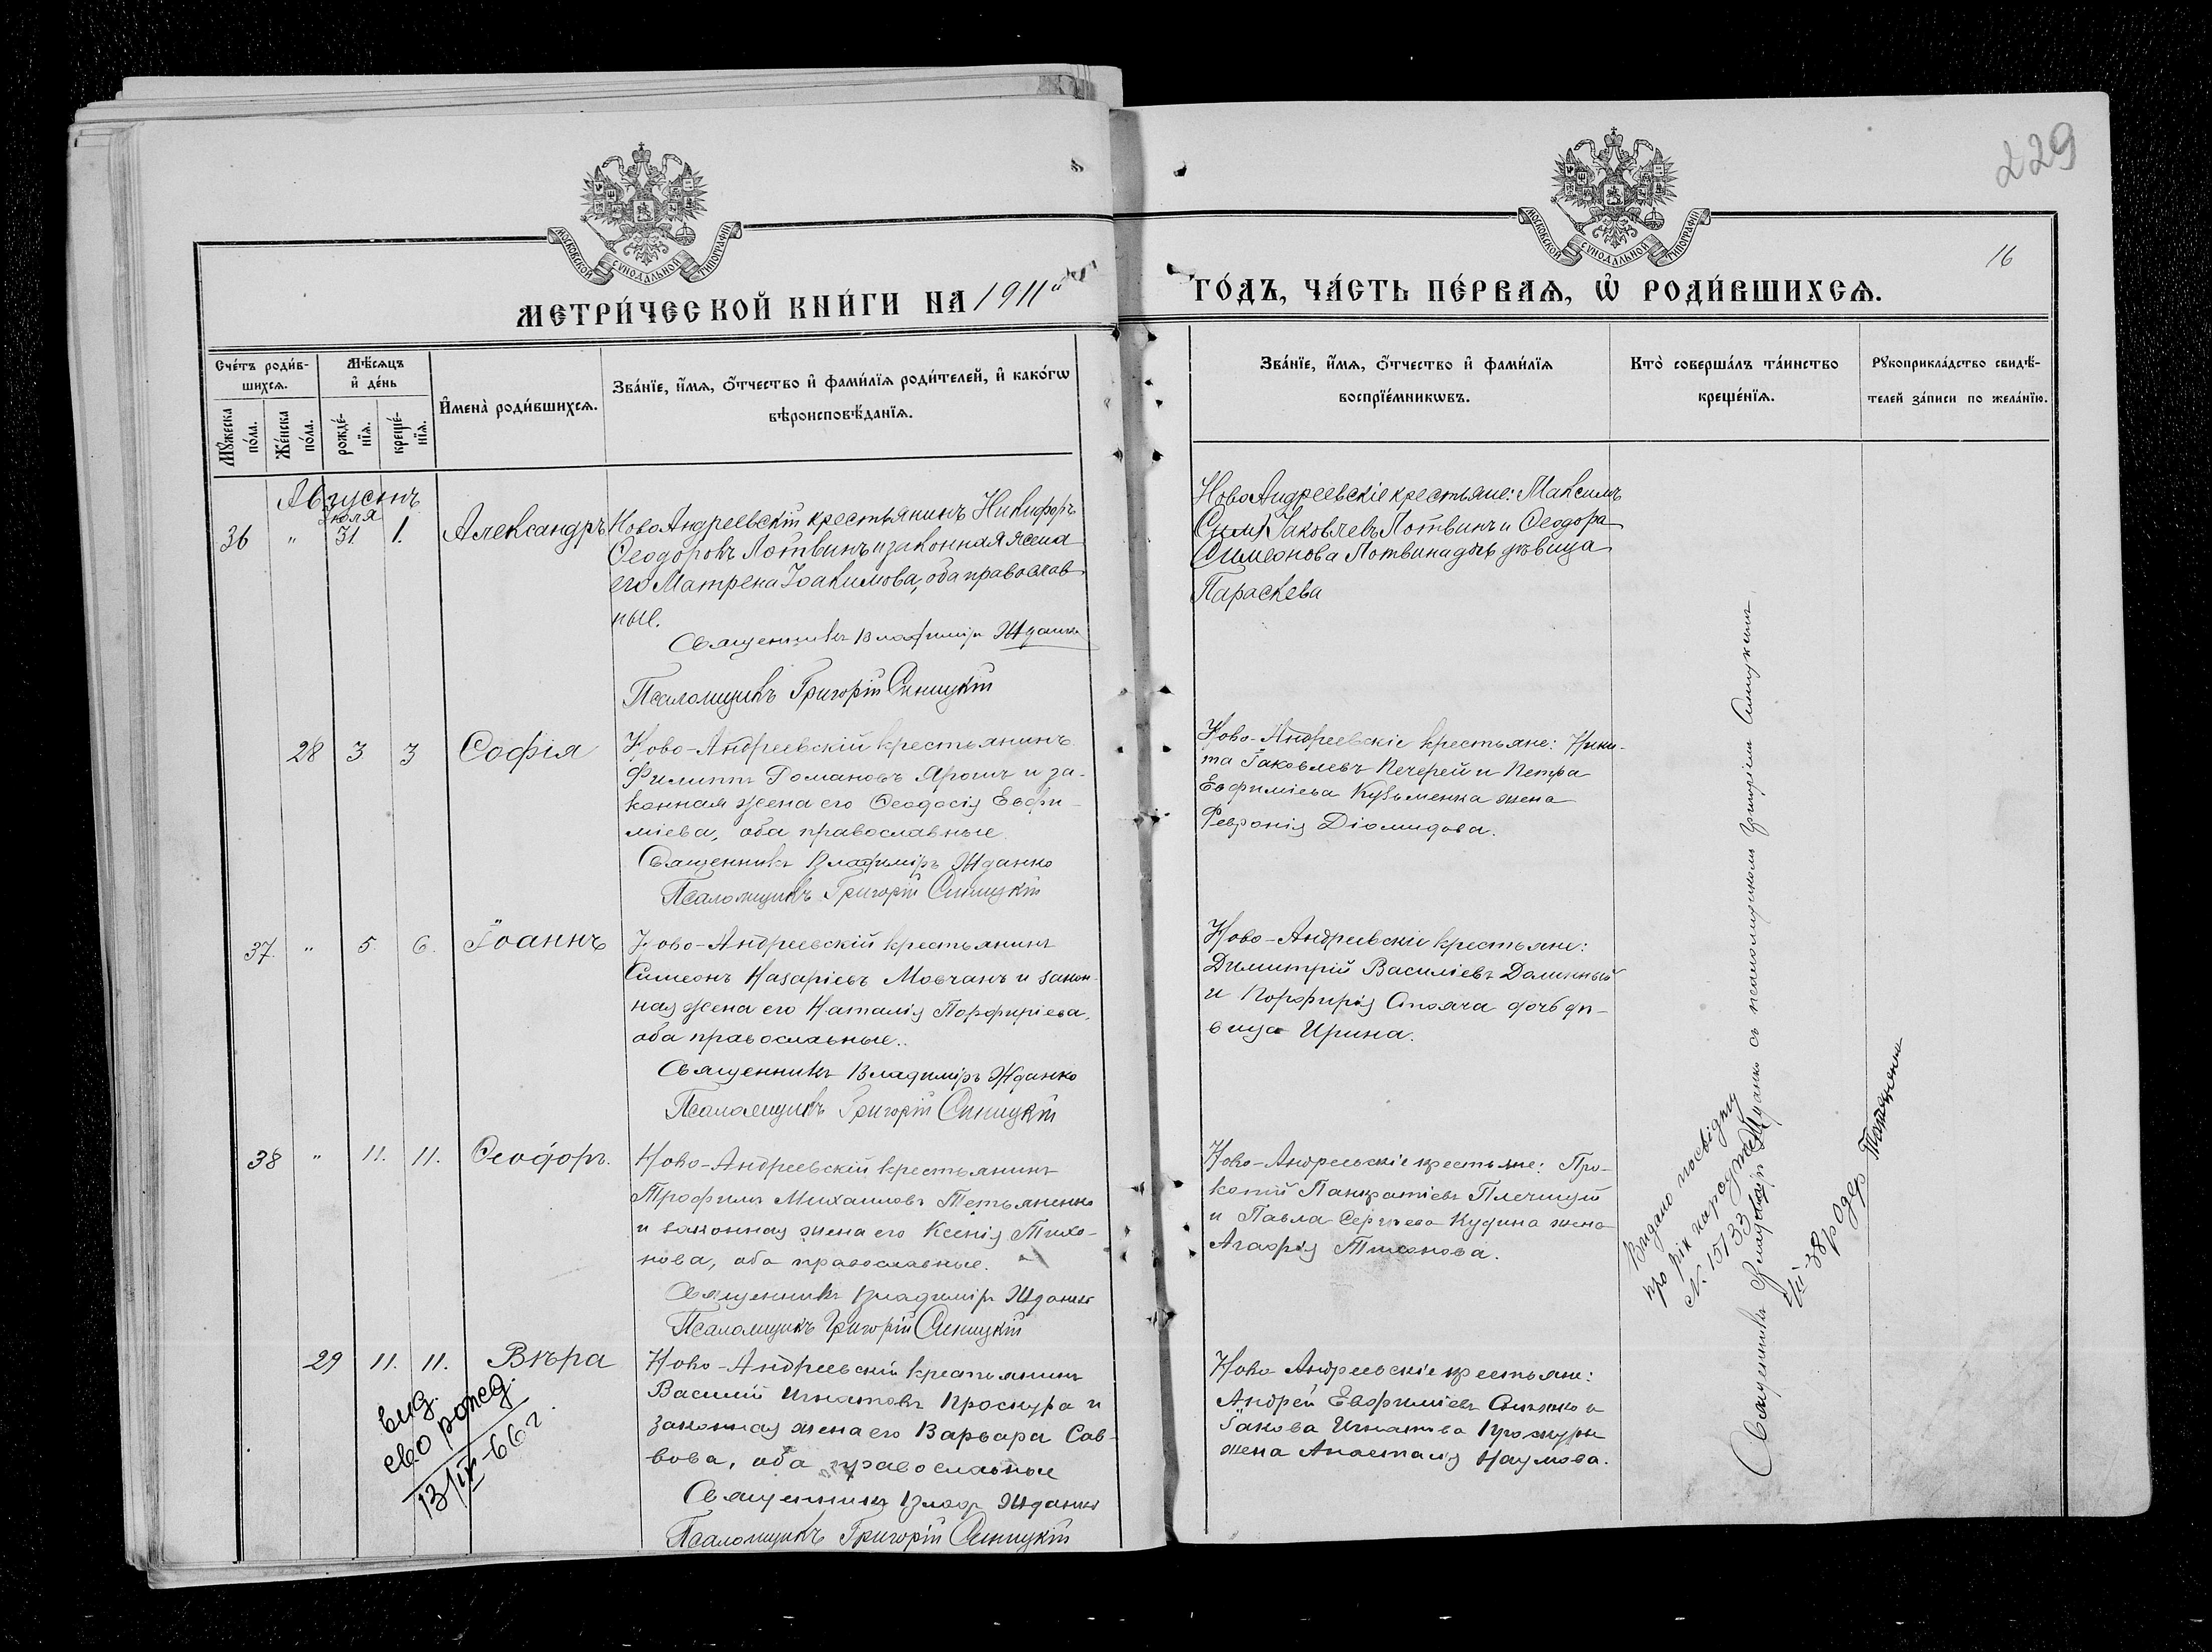 229
16
МОСКОВСКОЙ СѴНОДАЛЬНОЙ ТИПОГРАФІИ
МОСКОВСКОЙ СѴНОДАЛЬНОЙ ТИПОГРАФІИ
МЕТРИ́ЧЕСКОЙ КНИ́ГИ НА 1911
ГО́ДЪ, ЧА́СТЬ ПЕ́РВАѦ, Ѡ҆ РОДИ́ВШИХСѦ.
Сче́тъ роди́в-
шихсѧ.
Мꙋ́жеска
по́ла.
Же́нска
по́ла.
Мѣ́сѧцъ
и҆ де́нь
рожде́-
нїѧ.
креще́-
нїѧ.
И҆мена̀ роди́вшихсѧ.
Зва́нїе, и҆́мѧ, ѻ҆́тчество и҆ фами́лїѧ роди́телей, и҆ како́гѡ
вѣроисповѣ́данїѧ.
Зва́нїе, и҆́мѧ, ѻ҆́тчество и҆ фами́лїѧ
воспрїе́мникѡвъ.
Кто̀ соверша́лъ та́инство
креще́нїѧ.
Рꙋкоприкла́дство свидѣ́-
телей за́писи по жела́нїю.
Августъ
Іюля
36 " 31 1. Александръ
НовоАндреевскій крестьянинъ Никифоръ
Ѳеодоровъ Лотвинъ и законная жена
его Матрена Іоакимова, оба православ
ные.
Священникъ Владиміръ Жданко
Псаломщикъ Григорій Синицкій
НовоАндреевскіе крестьяне: Максимъ
Іаковлевъ Лотвинъ и Ѳеодора
Симеонова Лотвина дочь дѣвица
Параскева
28 3 3 Софія
Ново-Андреевскій крестьянинъ
Филиппъ Романовъ Ярошъ и за-
конная жена его Ѳеодосія Евфи-
міева, оба православные.
Священникъ Владиміръ Жданко
Псаломщикъ Григорій Синицкій
Ново-Андреевскіе крестьяне: Ники-
та Іаковлевъ Печерей и Петра
Евфиміева Кузьменка жена
Февронія Діомидова.
37. " 5. 6. Іоаннъ
Ново-Андреевскій крестьянинъ
Симеонъ Назаріевъ Мовчанъ и закон-
ная жена его Наталія Порфиріева,
оба православные.
Священникъ Владиміръ Жданко
Псаломщикъ Григорій Синицкій
Ново-Андреевскіе крестьяне:
Димитрій Василіевъ Долинный
и Порфирія Стояча дочь дѣ-
вица Ирина.
38 " 11. 11. Ѳеодоръ.
Ново-Андреевскій крестьянинъ
Трофимъ Михаиловъ Тетьяненко
и законная жена его Ксенія Тихо-
нова, оба православные.
Священникъ Владиміръ Жданко
Псаломщикъ Григорій Синицкій
Ново-Андреевскіе крестьяне: Про-
копій Панкратіевъ Плечицый
и Павла Сергіева Кудина жена
Агафія Тихонова.
29 11. 11. Вѣра
Ново-Андреевскій крестьянинъ
Василій Игнатовъ Проскура и
законная жена его Варвара Сав-
вова, оба православные
Священникъ Влад. Жданко
Псаломщикъ Григорій Синицкій
Ново Андреевскіе крестьяне:
Андрей Евфиміевъ и
Іакова Игнатіева Проскуры
жена Анастасія Наумова.
выд.
сво рожд.
13/IV-66 г.
Священникъ Владиміръ Жданко съ псаломщикомъ Григоріемъ Синицкимъ
Видано посвідку
про рік народження
№ 15133
38р Одер